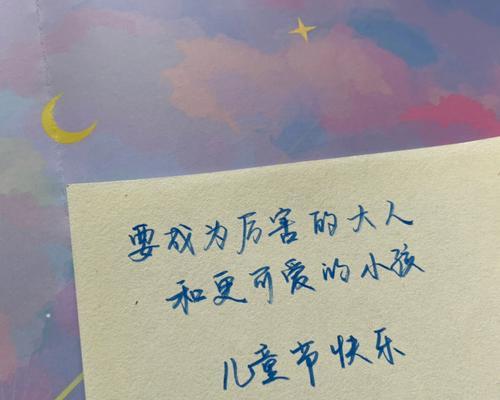 要成为厉害的大人
和更可爱的小孩
儿童节快乐